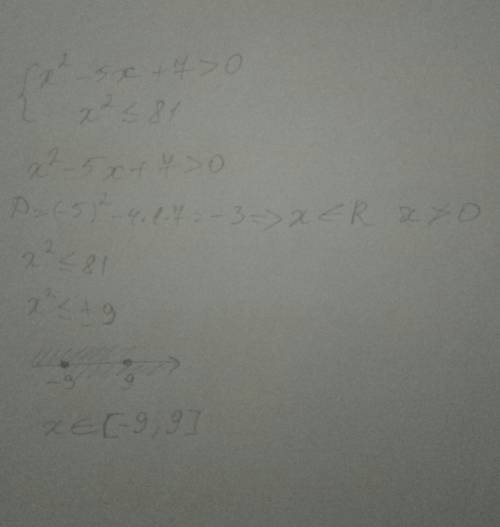 { x² - 5x + 7 > 0
x² ≤ 81
x² - 5x + 7 > 0
D = (-5)² - 4·1·7 = -3 => x ∈ R x > 0
x² ≤ 81
x² ≤ ± 9
-9 9
x ∈ [-9; 9]